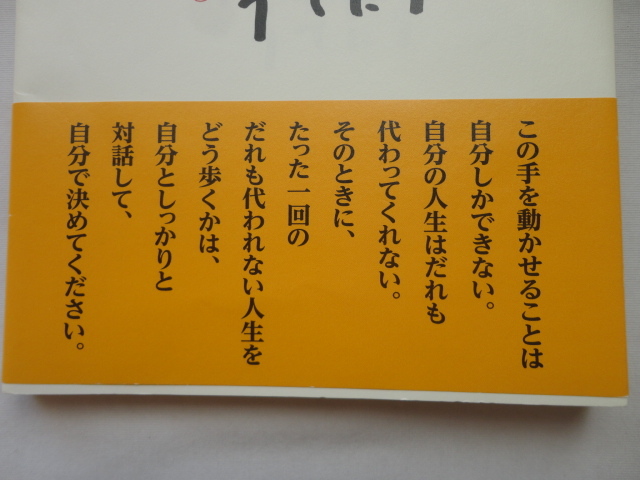 この手を動かせることは
自分しかできない。
自分の人生はだれも
代わってくれない。
そのときに、
たった一回の
だれも代われない人生を
どう歩くかは、
自分としっかりと
対話して、
自分で決めてください。